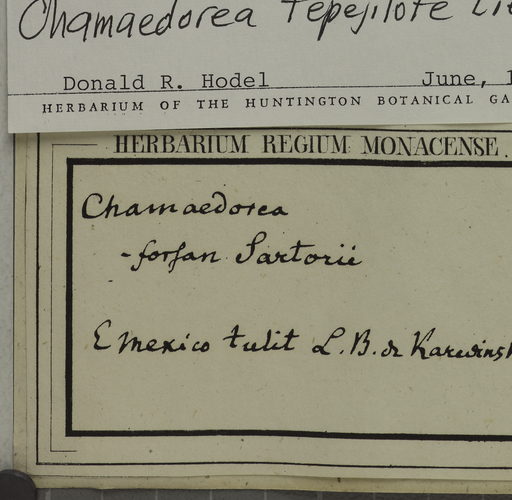 Chamaedorea Tepejilote Lie
Donald R. Hodel June, 1
HERBARIUM OF THE HUNTINGTON BOTANICAL GA
HERBARIUM REGIUM MONACENSE.
Chamaedorea
-forsan Sartorii
E Mexico tulit L.B. de Karwinsk